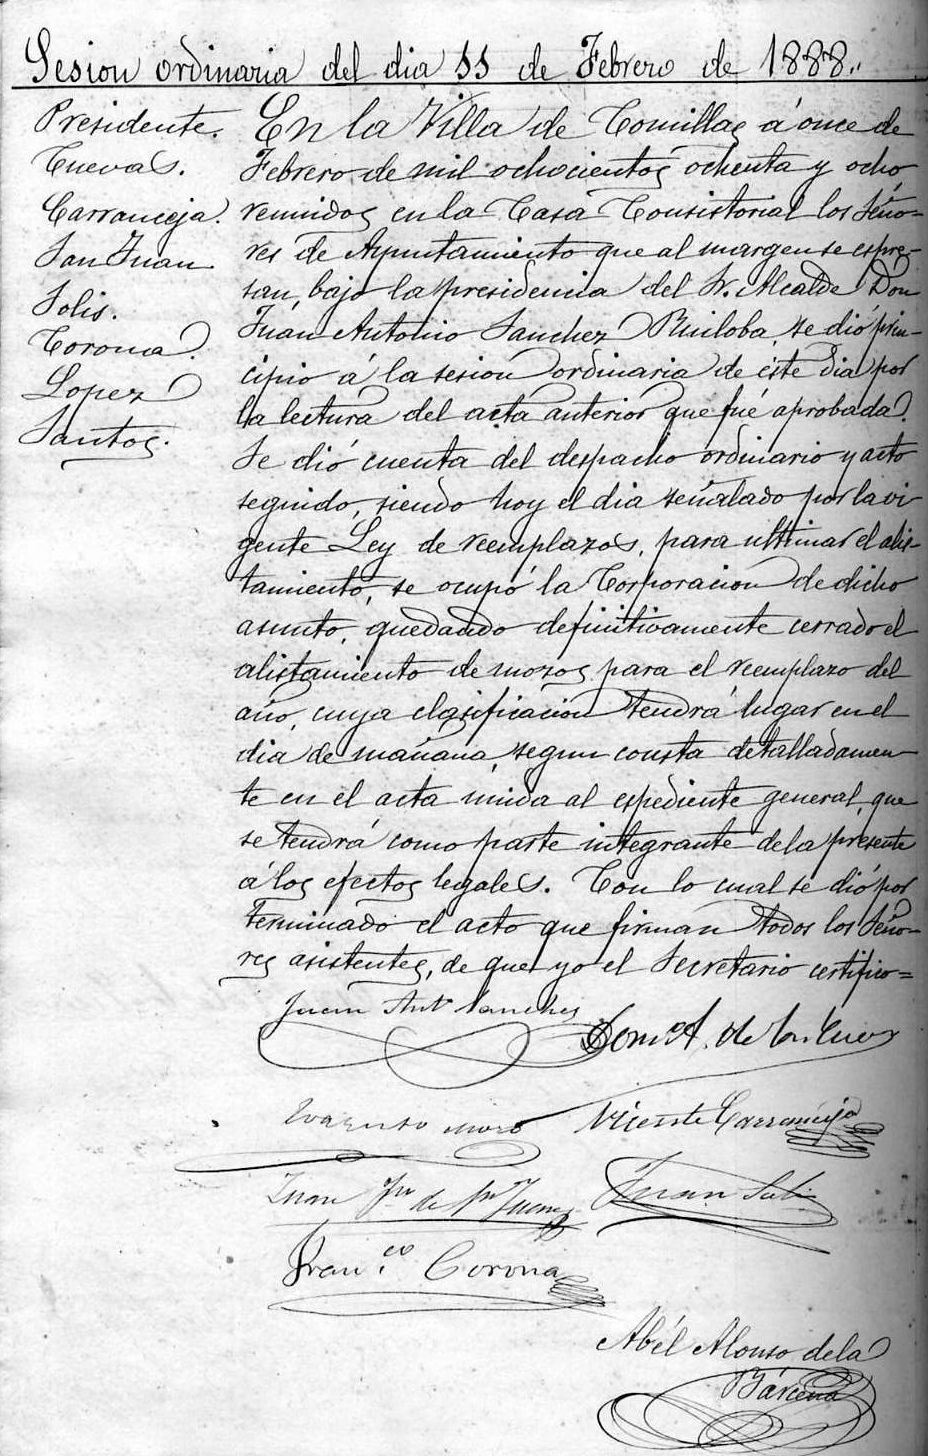 Sesion ordinaria del dia 11 de Febrero de 1888.
Presidente.
Cuevas.
Carranceja.
San Juan
Solis.
Corona.
Lopez
Santos.
En la Villa de Comillas á once de
Febrero de mil ochocientos ochenta y ocho
reunidos en la Casa Consistorial los Seño=
res de Ayuntamiento que al margen se espre-
san, bajo la presidencia del Sr. Alcalde Don
Juan Antonio Sanchez Ruiloba, se dió prin-
cipio á la sesion ordinaria de este dia por
la lectura del acta anterior que fué aprobada.
Se dió cuenta del despacho ordinario y acto
seguido, siendo hoy el dia señalado por la vi
gente Ley de reemplazos, para ultimar el alis-
tamiento, se ocupó la Corporacion de dicho
asunto, quedando definitivamente cerrado el
alistamiento de mozos para el reemplazo del
año, cuya clasificacion tendrá lugar en el
dia de mañana, segun consta detalladamen-
te en el acta unida al espediente general, que
se tendrá como parte integrante de la presente
á los efectos legales. Con lo cual se dió por
terminado el acto que firman todos los Seño-
res asistentes, de que yo el Secretario certifico=
Juan Ant.º Sanchez
Dom.º A. de las Cuevas
Vicente Carranceja
Juan Solis
Fran.co Corona
Abél Alonso de la
Bárcena